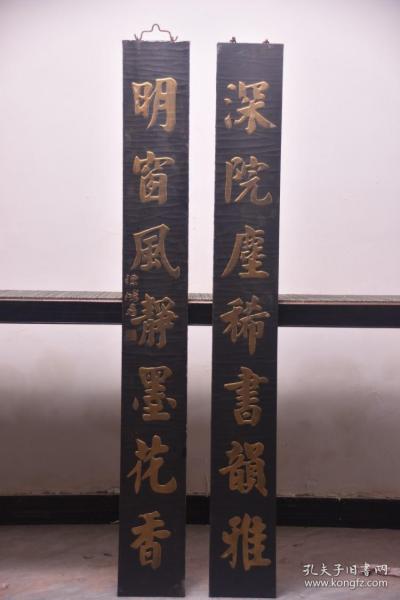 深院塵稀書韻雅
明窗風靜墨花香
孔夫子旧书网
www.kongfz.com